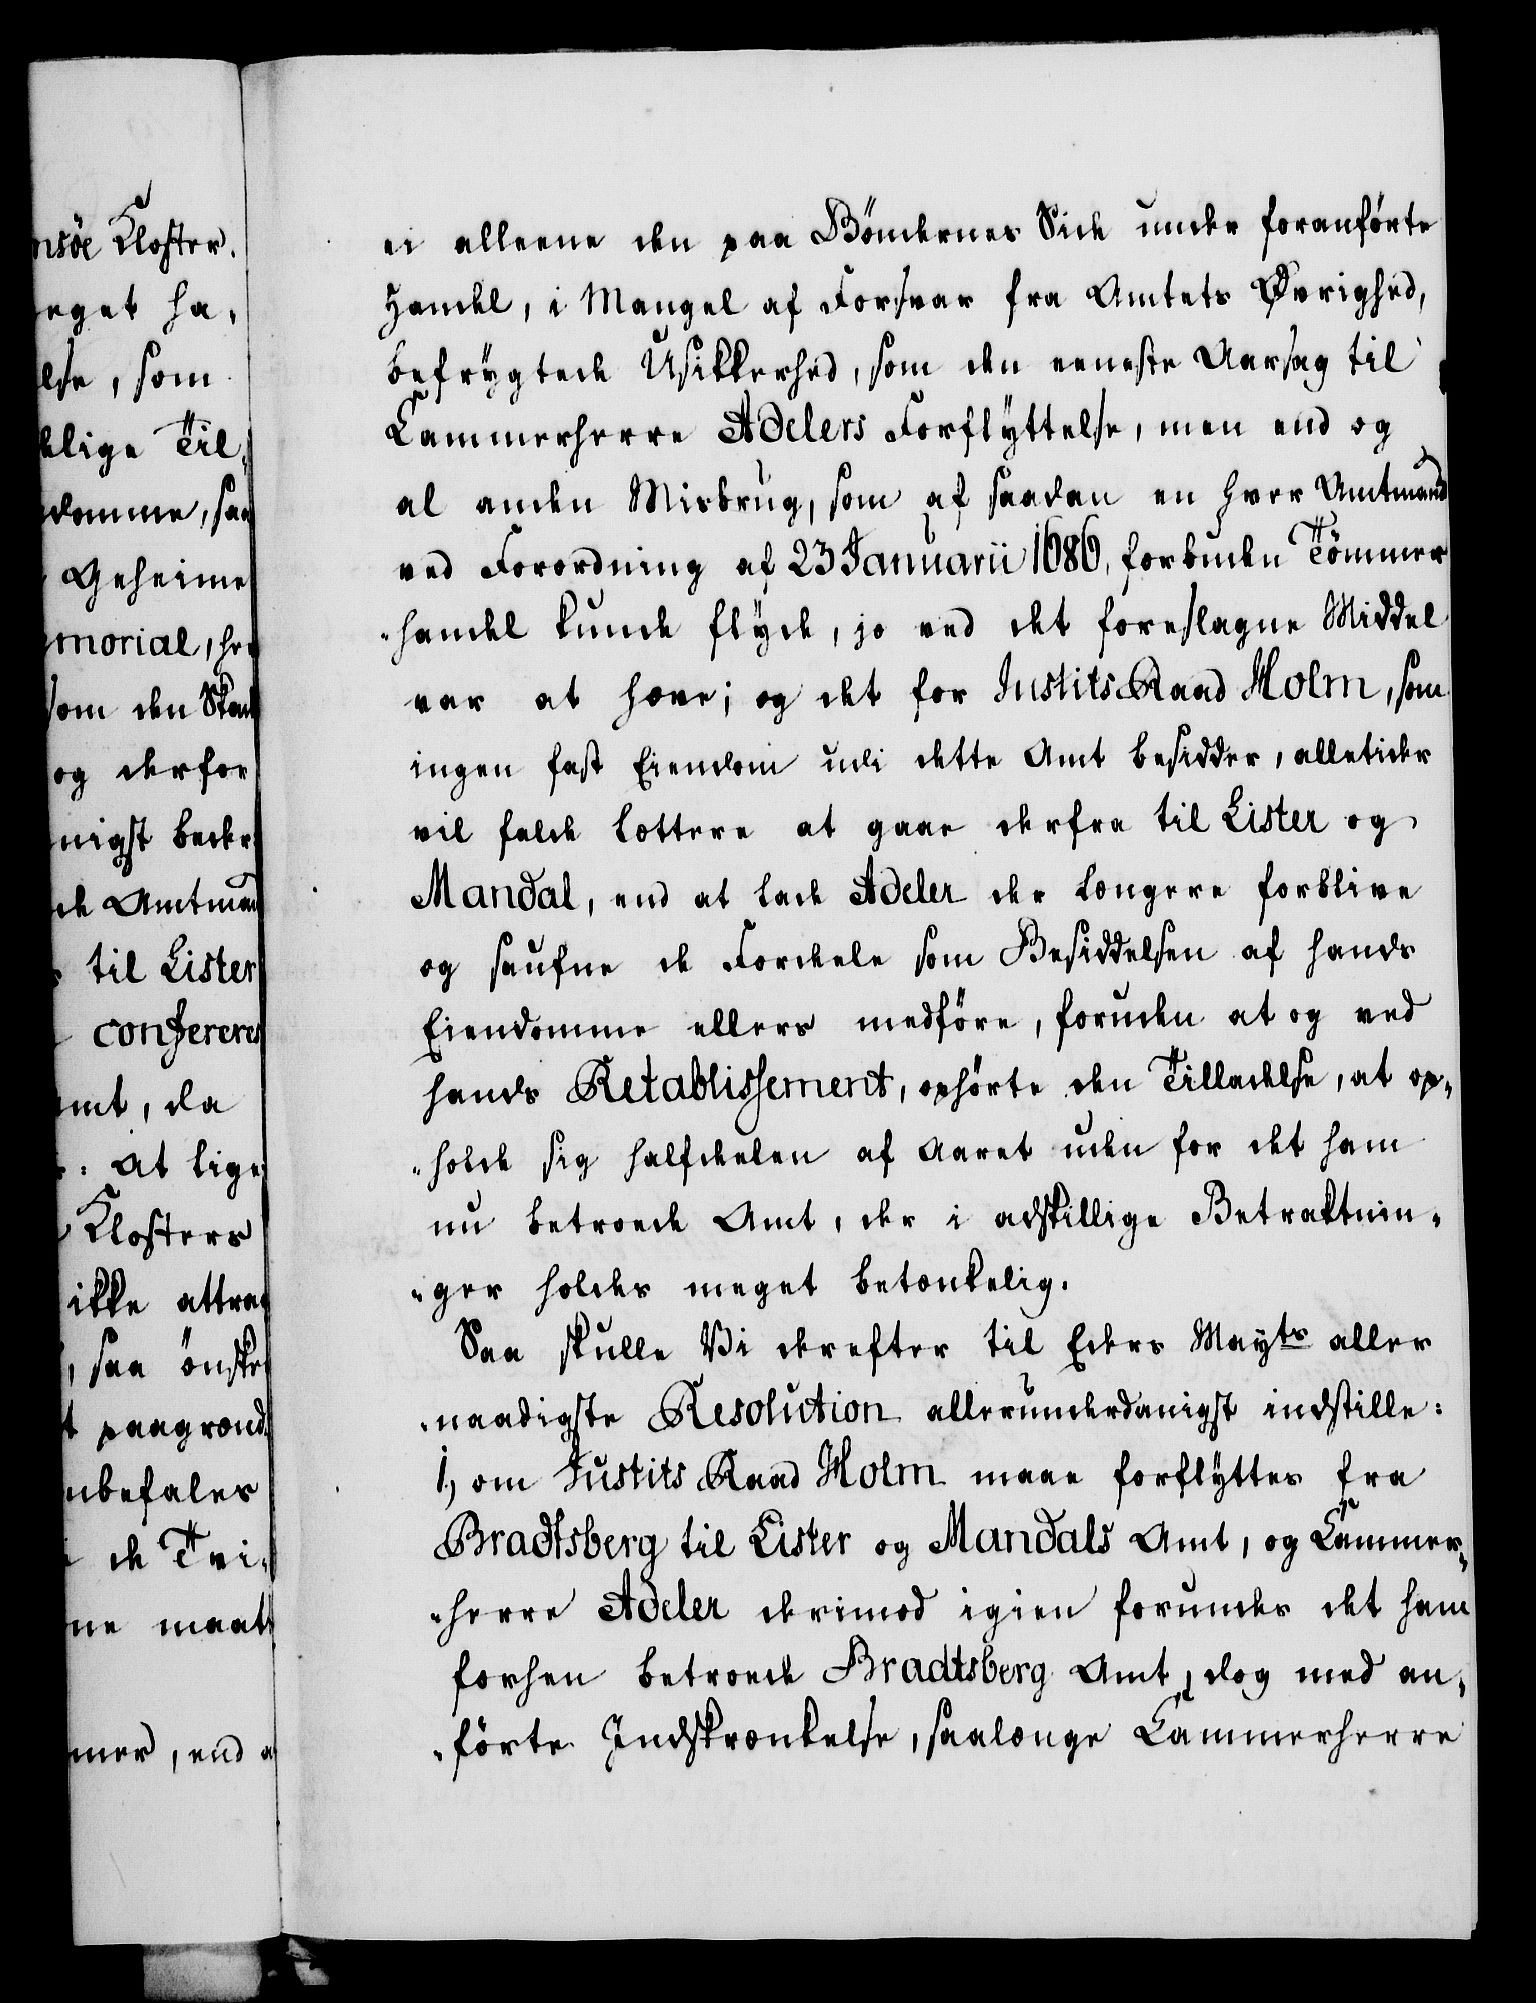 nsöe Kloster.
eget ha,
lse, som
lige Til,
domme, saa
Geheime
morial, hvo
som den Skou
og derfor
nigst beder
de Amtmand
til Lister
confereres
mt, da
: at lige
Klosters
ikke attra
, saa önske
t paagrond
nbefales
de Tvi,
ne maatt
mer, end a
ei alleene den paa Böndernes Side under foranförte
Handel, i Mangel af Forsvar fra Amtets Øvrighed,
befrygtede Usikkerhed, som den eeneste Aarsag til
Cammerherre Adelers Forflyttelse, men end og
al anden Misbrug, som af saadan en hver Amtmand
ved Forordning af 23 Januarii 1686, forbuden Tömmer
"handel kunde flyde, jo ved det foreslagne Middel
var at hæve; og det for Justits Raad Holm, som
ingen fast Eiendom udi dette Amt besidder, alletider
vil falde lættere at gaae derfra til Lister og
Mandal, end at lade Adeler der længere forblive
og saufne de Fordeele som Besiddelsen af hands
Eiendomme ellers medföre, foruden at og ved
hands Retablissement, ophörte den Tilladelse, at op,
"holde sig halfdeelen af Aaret uden for det ham
nu betroede Amt, der i adskillige Betraktnin,
"ger holdes meget betænkelig.
Saa skulle Vi derefter til Eders Mayts aller
"naadigste Resolution allerunderdanigst indstille:
1, om Justits Raad Holm maae forflyttes fra
Bradtsberg til Lister og Mandals Amt, og Cammer,
"herre Adeler derimod igien forundes det ham
forhen betroede Bradtsberg Amt, dog med an,
"förte Indskrænkelse, saalænge Cammerherre